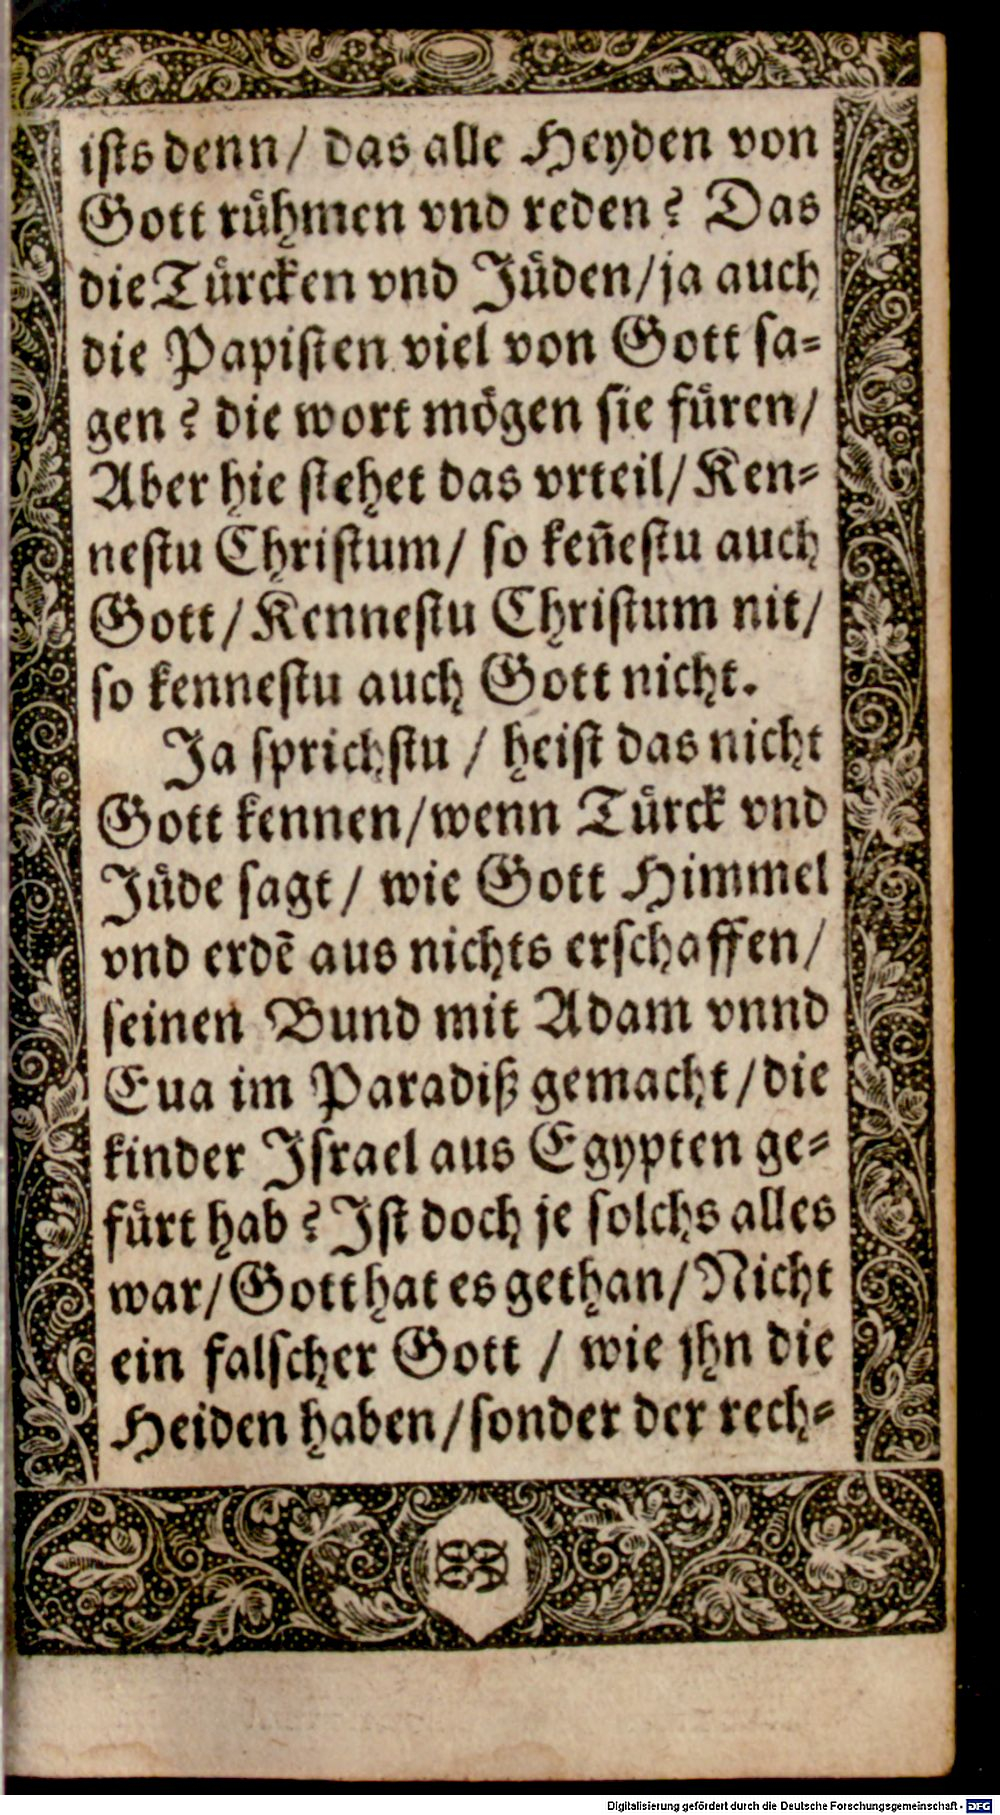 iſts denn/ das alle Heyden von
Gott rühmen vnd reden? Das
die Türcken vnd Jüden/ja auch
die Papiſten viel von Gott ſa-
gen? die wort mögen ſie füren/
Aber hie ſtehet das vrteil/Ken-
neſtu Chriſtum/ ſo keñeſtu auch
Gott/Kenneſtu Chriſtum nit/
ſo kenneſtu auch Gott nicht.
Ja ſprichſtu / heiſt das nicht
Gott kennen/wenn Türck vnd
Jüde ſagt/ wie Gott Himmel
vnd erdē aus nichts erſchaffen/
ſeinen Bund mit Adam vnnd
Eua im Paradiß gemacht/die
kinder Jſrael aus Egypten ge-
fürt hab? Jſt doch je ſolchs alles
war/Gott hat es gethan/Nicht
ein falſcher Gott / wie jhn die
Heiden haben/ſonder der rech-
Digitalisierung gefördert durch die Deutsche Forschungsgemeinschaft - DFG